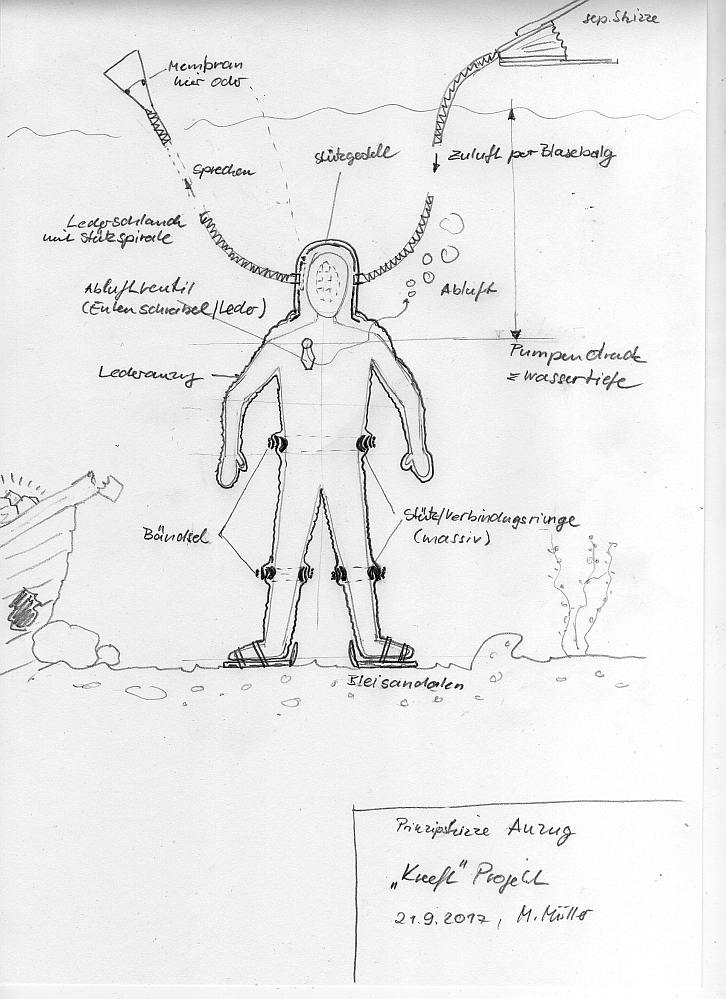 sep. Skizze
Membran
hier oder
Stützgestell
Zuluft per Blasebalg
Sprechen
Lederschlauch
mit Stützspirale
Abluftventil
(Entenschnabel/Leder)
Abluft
Pumpendruck
= Wassertiefe
Lederanzug
Bändsel
Stütz/Verbindungsringe
(massiv)
Bleisandalen
Prinzipskizze Anzug
"Projekt
21.9.2017, M. Müller